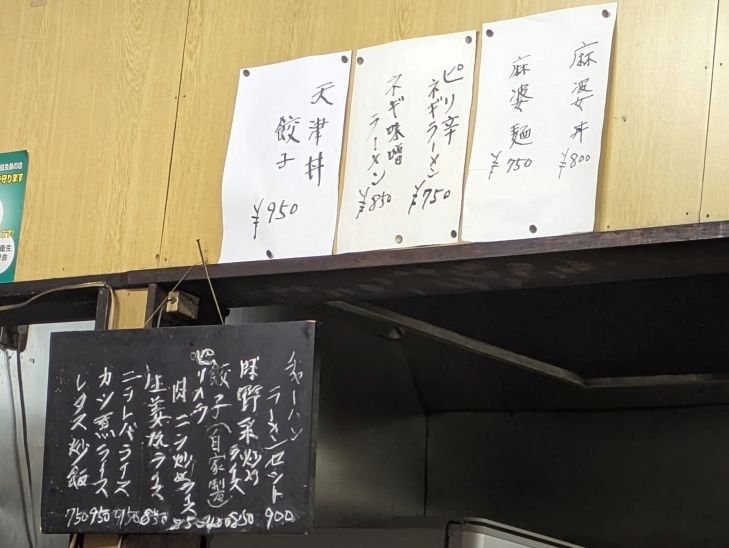 麻婆丼
¥800
麻婆麺
¥750
ピリ辛
ネギラーメン
¥750
ネギ味噌
ラーメン
¥850
天津丼
餃子
¥950
チャーハン
ラーメンセット 900
豚野菜炒め
ライス 850
餃子(自家製) 400
肉ニラ炒めライス 850
生姜焼ライス 850
ニラレバライス 950
カツ煮ライス 950
レタス炒飯 750
守ります